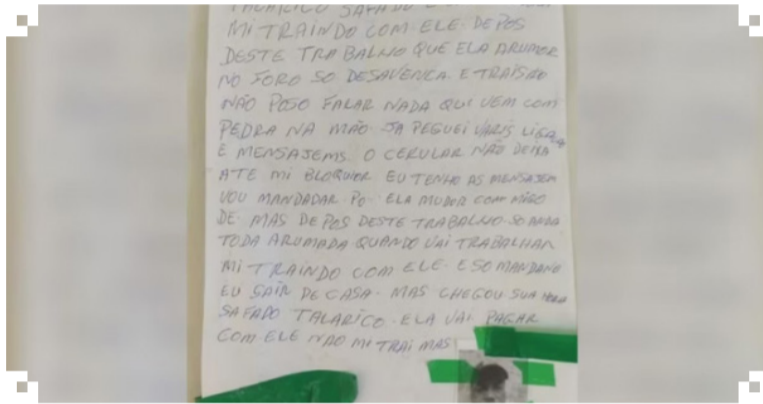 TALARICO SAFADO E
MI TRAINDO COM ELE. DEPOS
DESTE TRABALHO QUE ELA ARUMOR
NO FORO SO DESAVENCA. E TRAISÃO
NÃO POSO FALAR NADA QUI VEM COM
PEDRA NA MÃO. JA PEGUEI VARIS LIGAÇA
E MENSAJEMS. O CERULAR NÃO DEIXA
ATE MI BLOQUIOR EU TENHO AS MENSAJEM
VOU MANDADAR. PO. ELA MUDOR COM MIGO
DE. MAS DEPOS DESTE TRABALHO SO ANDA
TODA ARUMADA QUANDO VAI TRABALHAR
MI TRAINDO COM ELE. E SO MANDANO
EU SAIR DE CASA. MAS CHEGOU SUA HORA
SAFADO TALARICO. ELA VAI PAGAR
COM ELE NÃO MI TRAI MAS